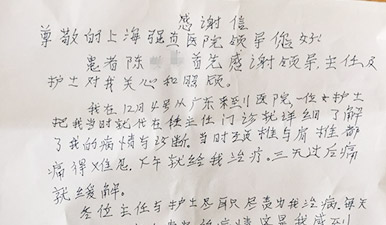 感谢信
尊敬的上海强直医院领导你好
患者陈 首先感谢领导.主任及
护士对我关心和照顾。
我在12月4号从广东来到医院,一位女护士
把我当时就代在任主任门诊就详细了解
了我的病情与诊断。当时颈椎与肩椎都
痛得难忍.下午就给我治疗。三天过后痛
就缓解。
各位主任与护士尽职尽责为我治病.每天
这是我感到